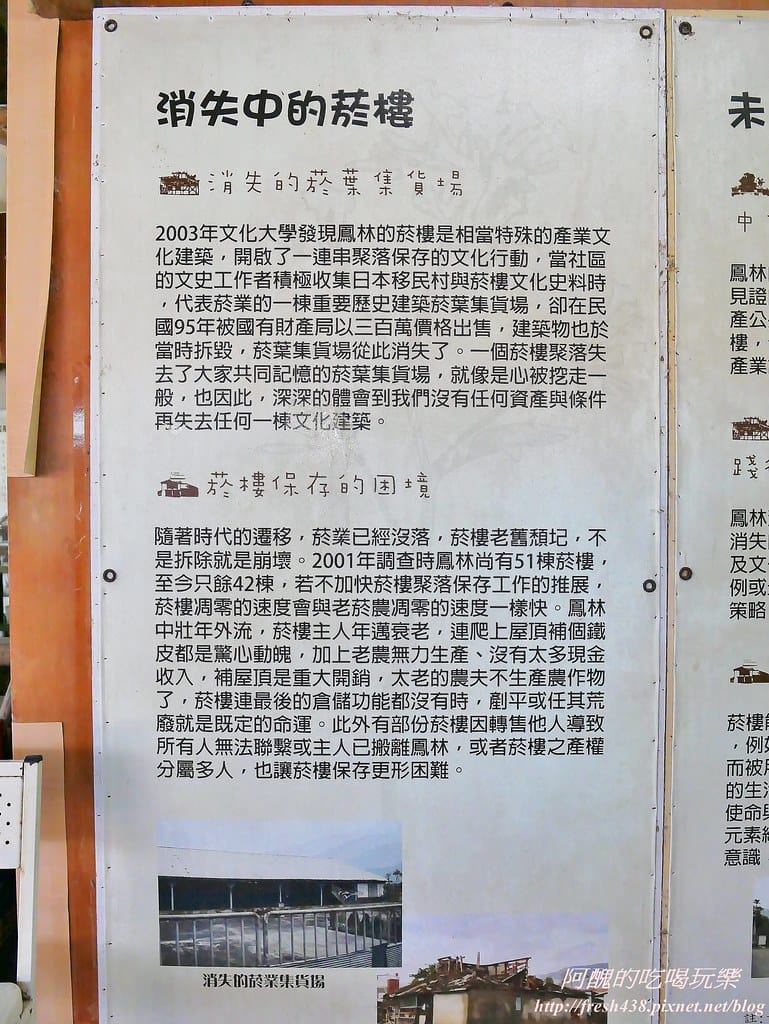 消失中的菸樓
消失的菸葉集貨場
2003年文化大學發現鳳林的菸樓是相當特殊的產業文
化建築，開啟了一連串聚落保存的文化行動，當社區
的文史工作者積極收集日本移民村與菸樓文化史料時
，代表菸業的一棟重要歷史建築菸葉集貨場，卻在民
國95年被國有財產局以三百萬價格出售，建築物也於
當時拆毀，菸葉集貨場從此消失了。一個菸樓聚落失
去了大家共同記憶的菸葉集貨場，就像是心被挖走一
般，也因此，深深的體會到我們沒有任何資產與條件
再失去任何一棟文化建築。
菸樓保存的困境
隨著時代的遷移，菸業已經沒落，菸樓老舊頹圮，不
是拆除就是崩壞。2001年調查時鳳林尚有51棟菸樓，
至今只餘42棟，若不加快菸樓聚落保存工作的推展，
菸樓凋零的速度會與老菸農凋零的速度一樣快。鳳林
中壯年外流，菸樓主人年邁衰老，連爬上屋頂補個鐵
皮都是驚心動魄，加上老農無力生產、沒有太多現金
收入，補屋頂是重大開銷，太老的農夫不生產農作物
了，菸樓連最後的倉儲功能都沒有時，剷平或任其荒
廢就是既定的命運。此外有部份菸樓因轉售他人導致
所有人無法聯繫或主人已搬離鳳林，或者菸樓之產權
分屬多人，也讓菸樓保存更形困難。
消失的菸業集貨場
未
中
鳳林
見證
產公
樓，
產業
踐
鳳林
消失
及文
例或
策略
菸樓
，例如
而被
的生活
使命與
元素
意識
註:
阿醜的吃喝玩樂
http://fresh438.pixnet.net/blog